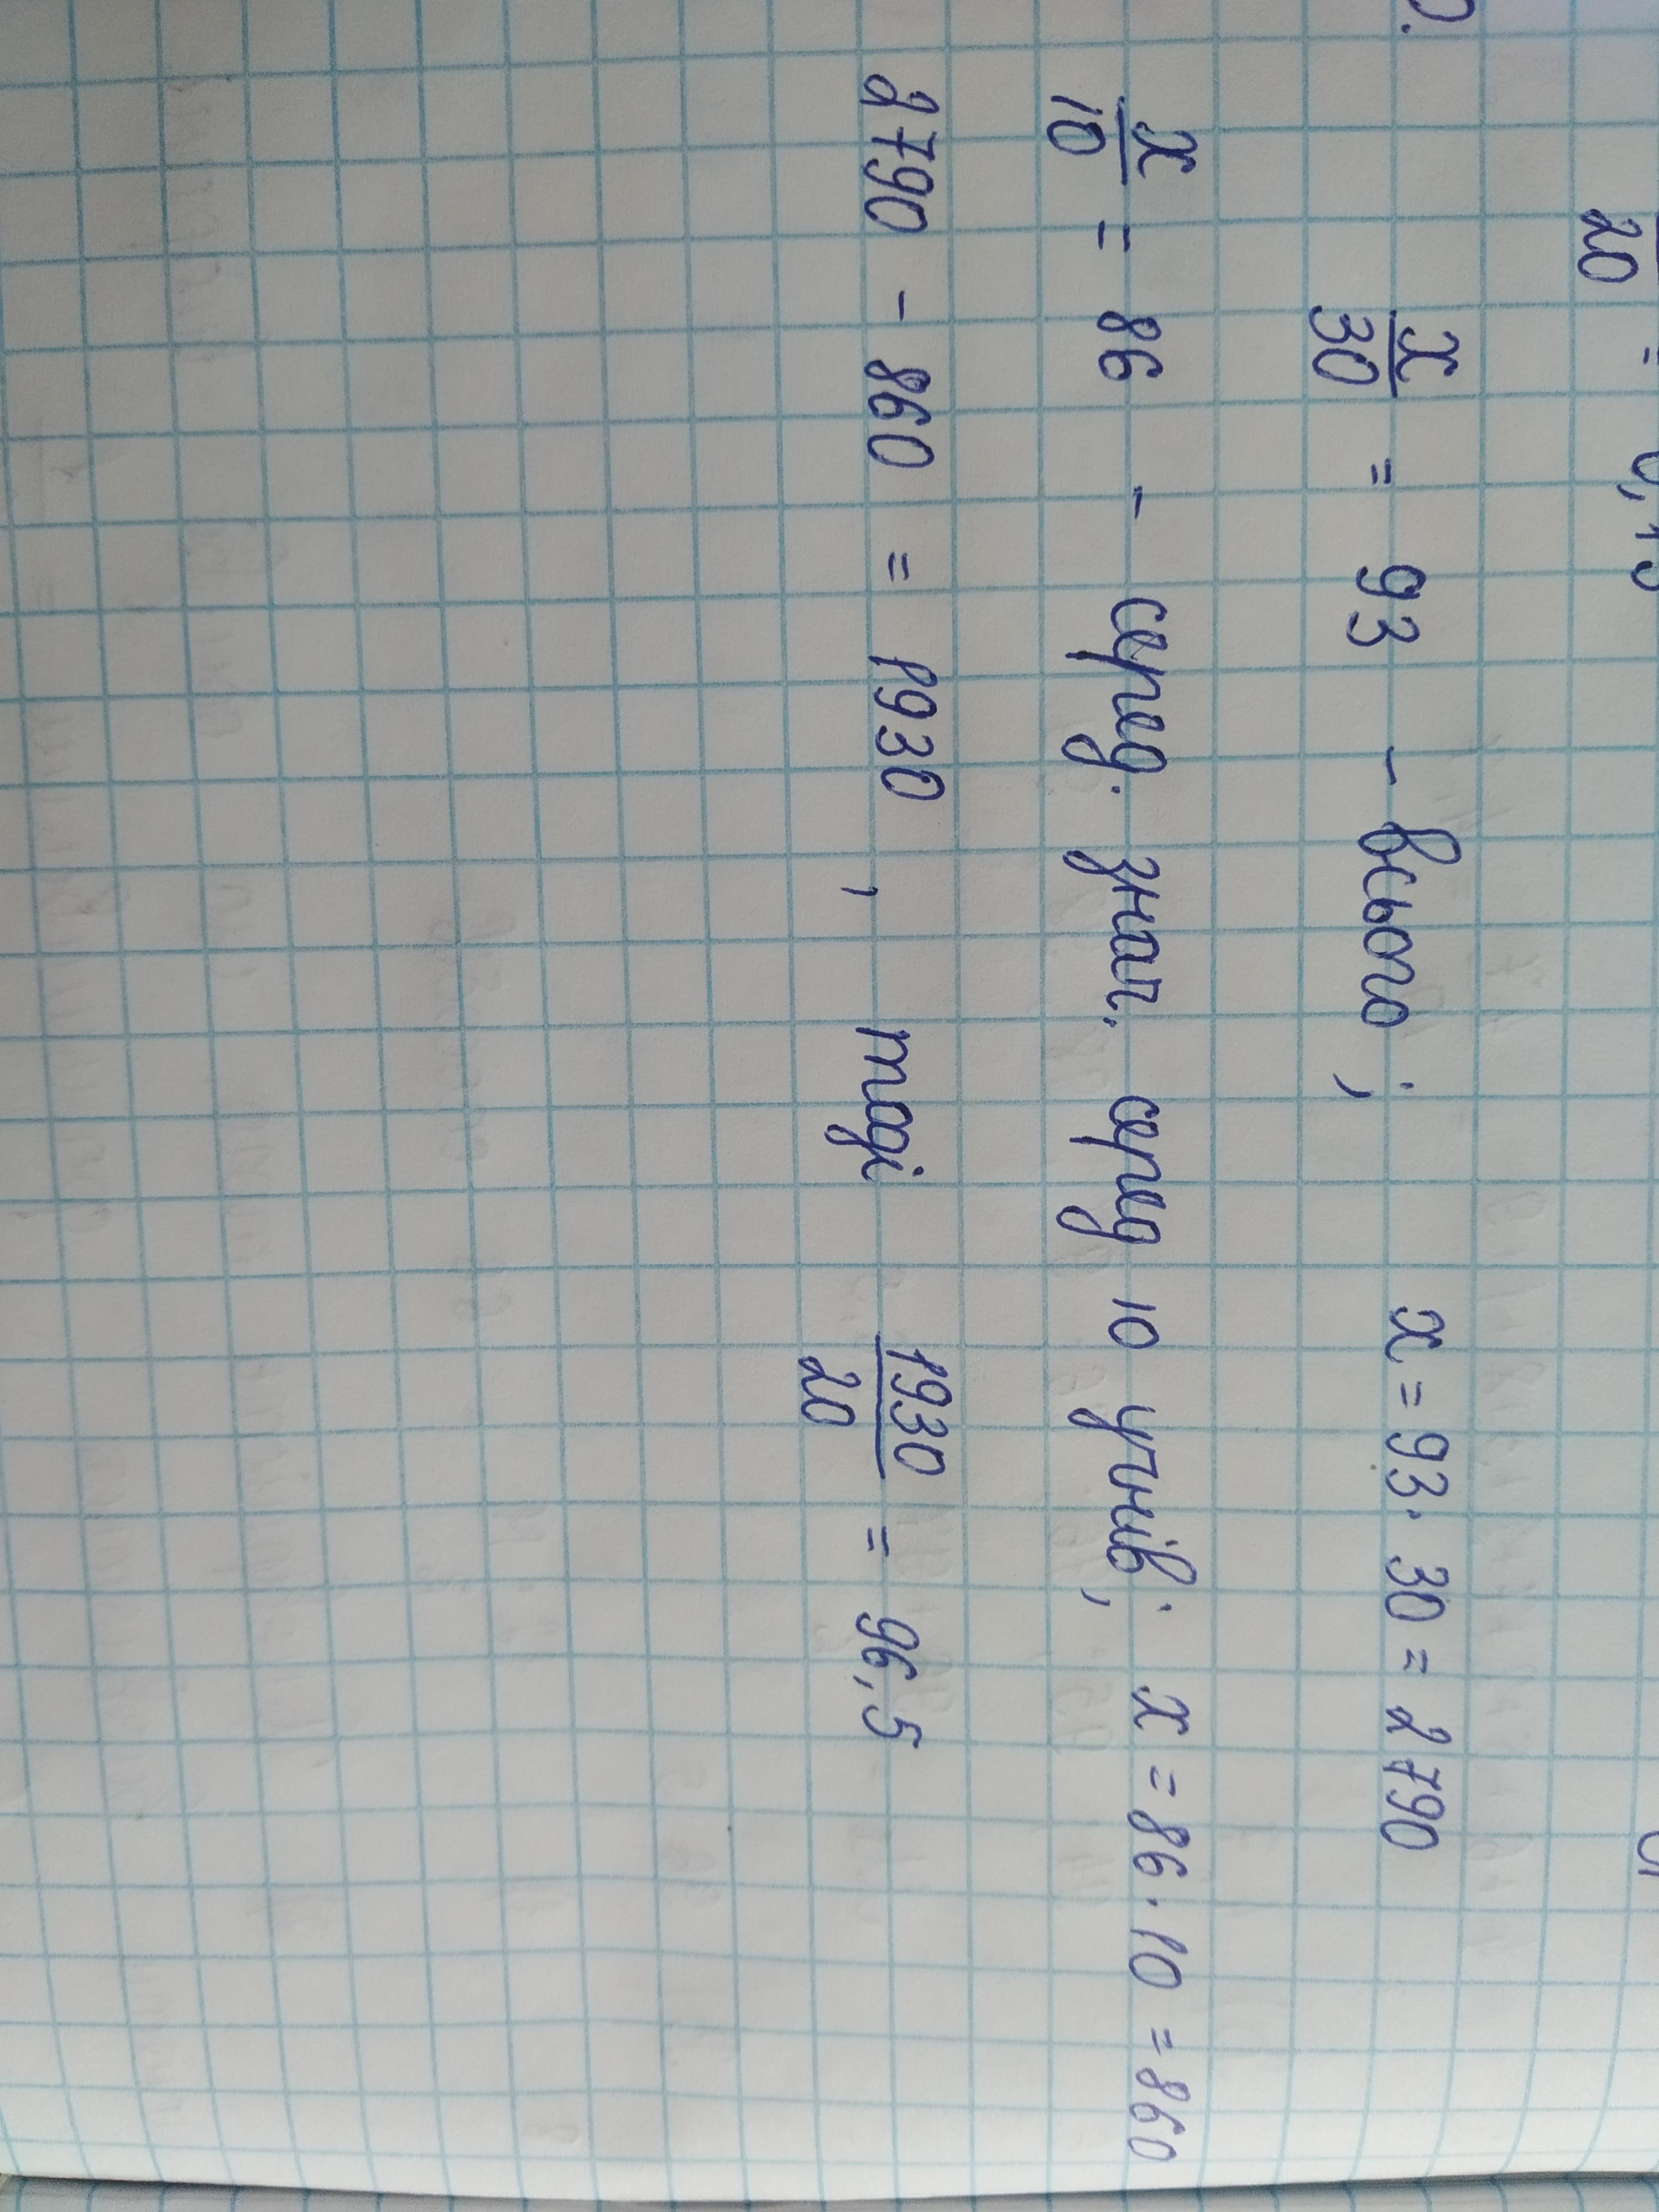 20 = 0,15
x/30 = 93 - всього; x = 93 · 30 = 2790
x/10 = 86 - серед. знач. серед 10 учнів; x = 86 · 10 = 860
2790 - 860 = 1930, тоді 1930/20 = 96,5